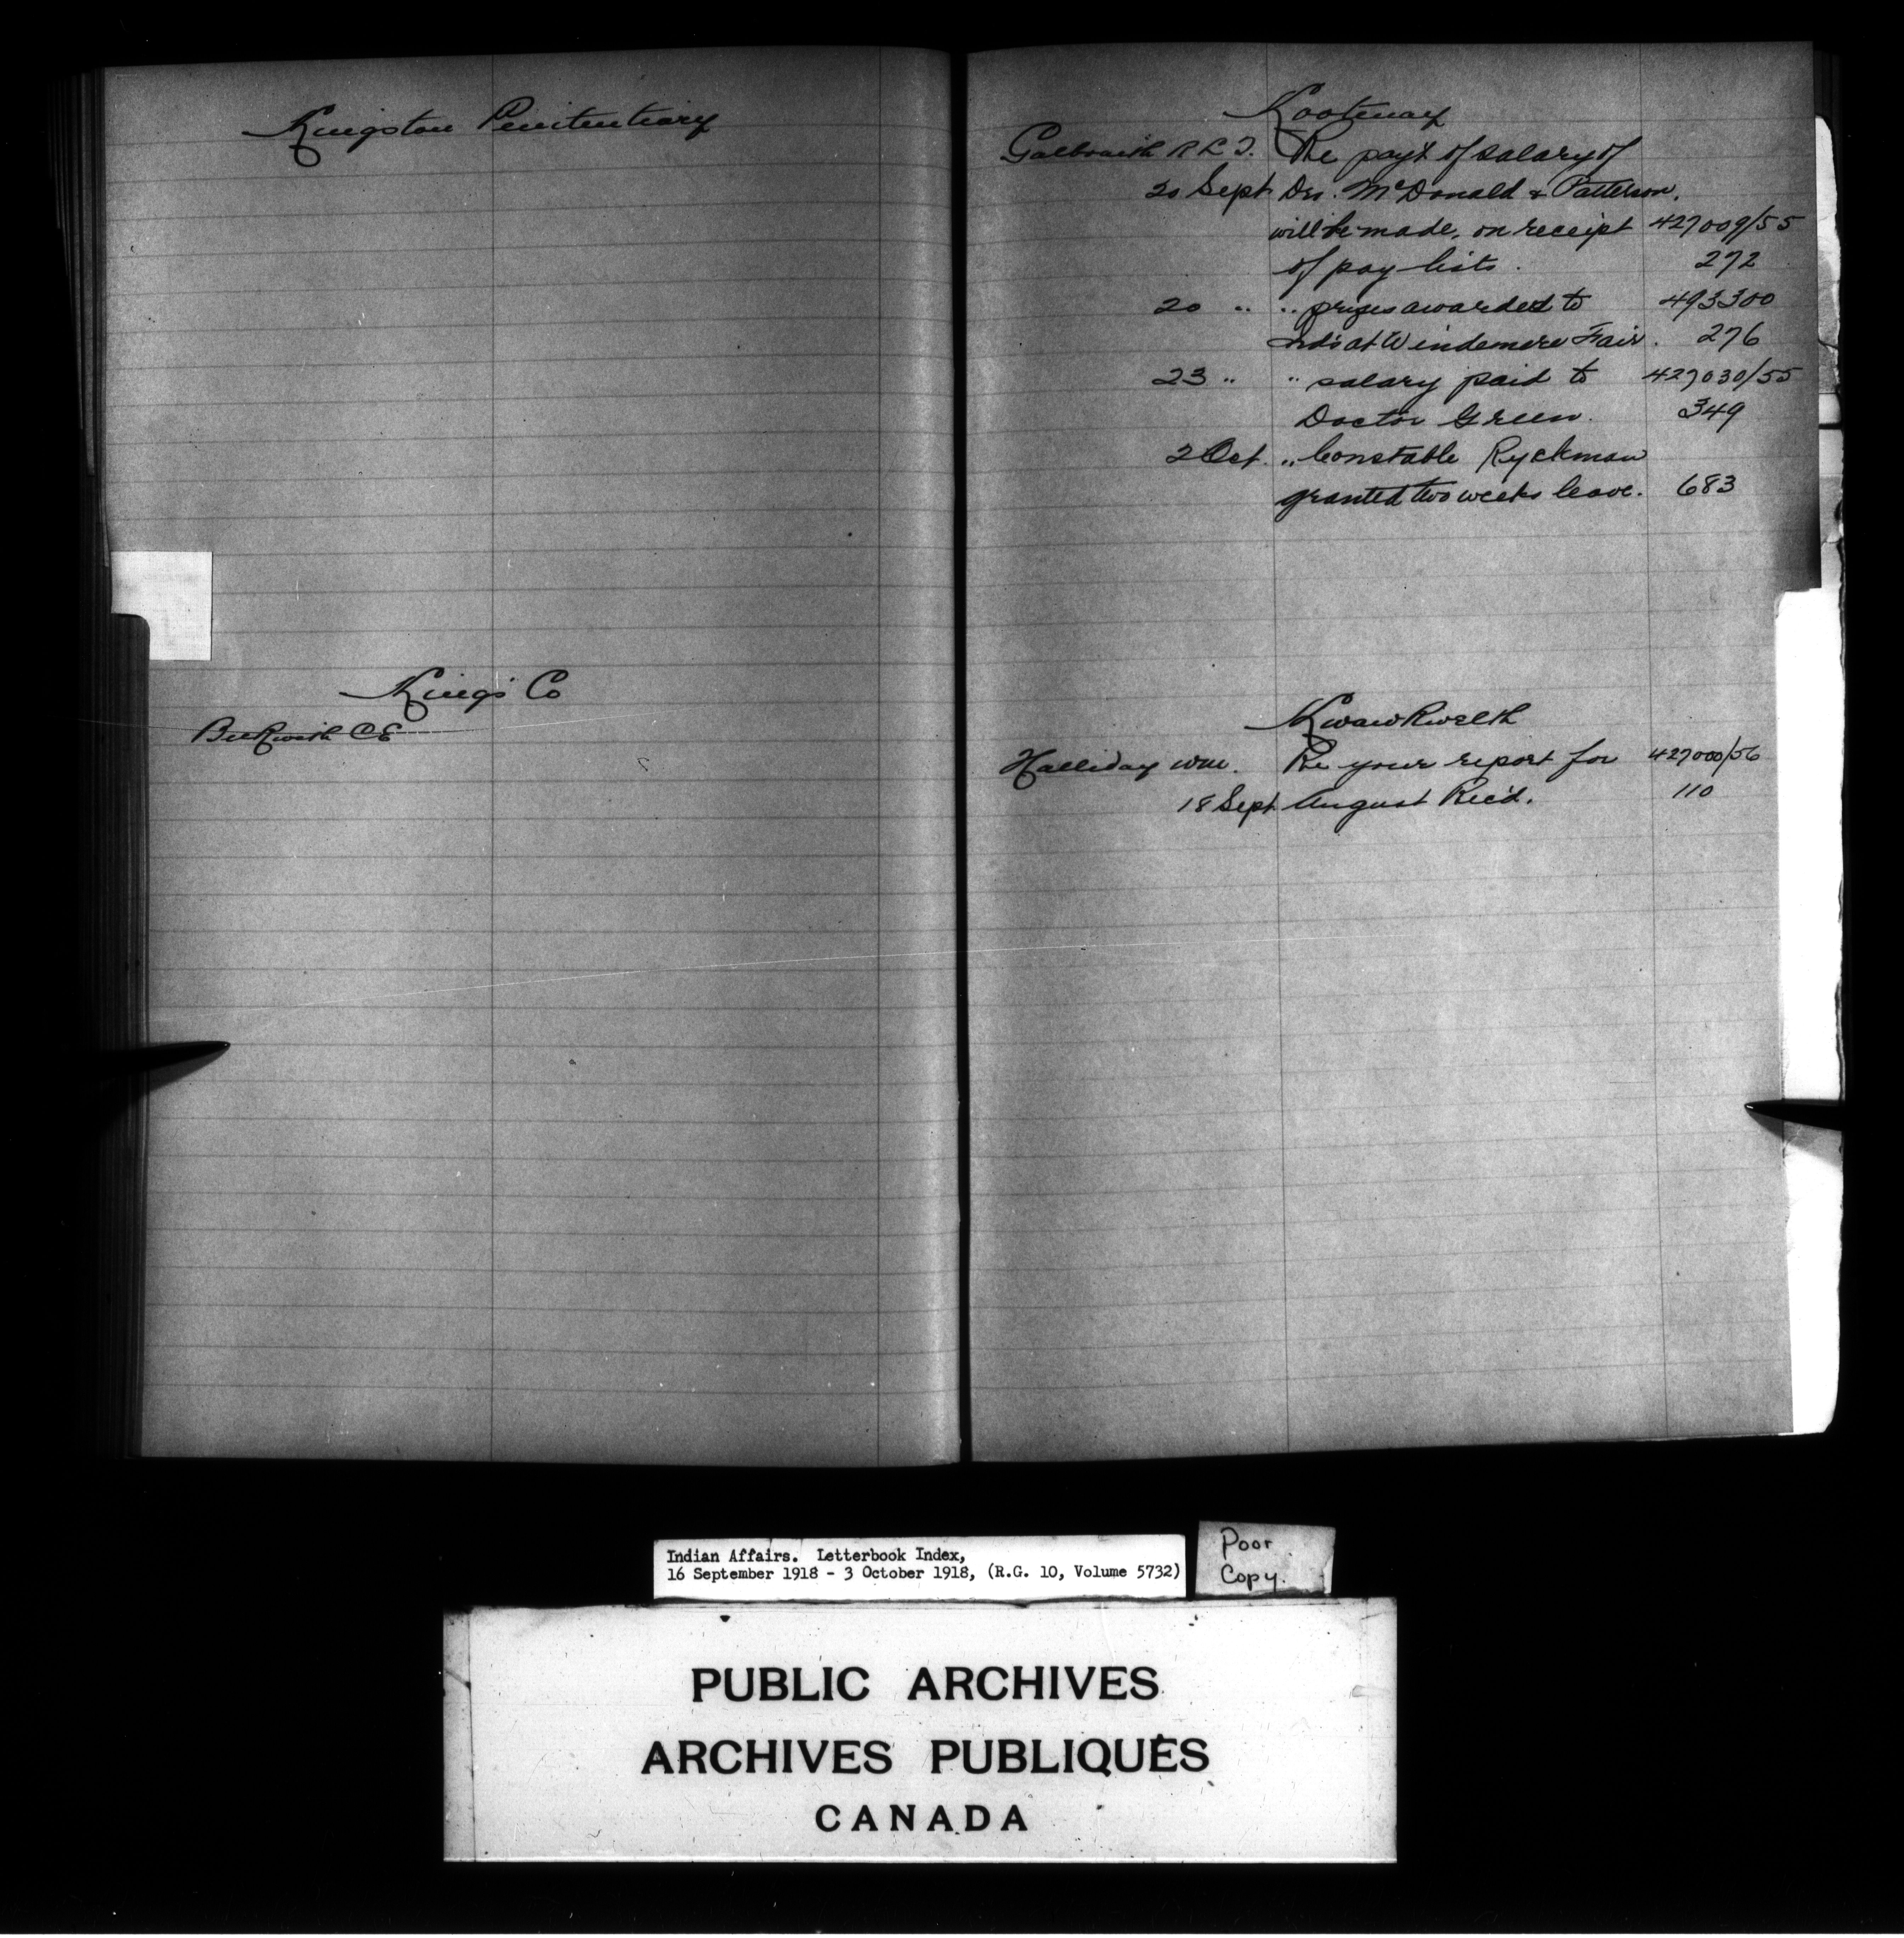 Kingston Penitentiary
King's Co
Beckwith C E
Kootenay
Galbraith R L T. Re payt of salary of
20 Sept Drs. McDonald & Patterson,
will be made, on receipt 427009/55
of pay lists. 272
20 " " prizes awarded to 493300
Inds at Windemere Fair. 276
23 " " salary paid to 427030/55
Doctor Green. 349
2 Oct. " Constable Ryckman
granted two weeks leave. 683
Kwawkwelth
Halliday Wm. Re your report for 427000/56
18 Sept August Rec'd. 110
Indian Affairs. Letterbook Index,
16 September 1918 - 3 October 1918, (R.G. 10, Volume 5732)
Poor
Copy.
PUBLIC ARCHIVES
ARCHIVES PUBLIQUES
CANADA